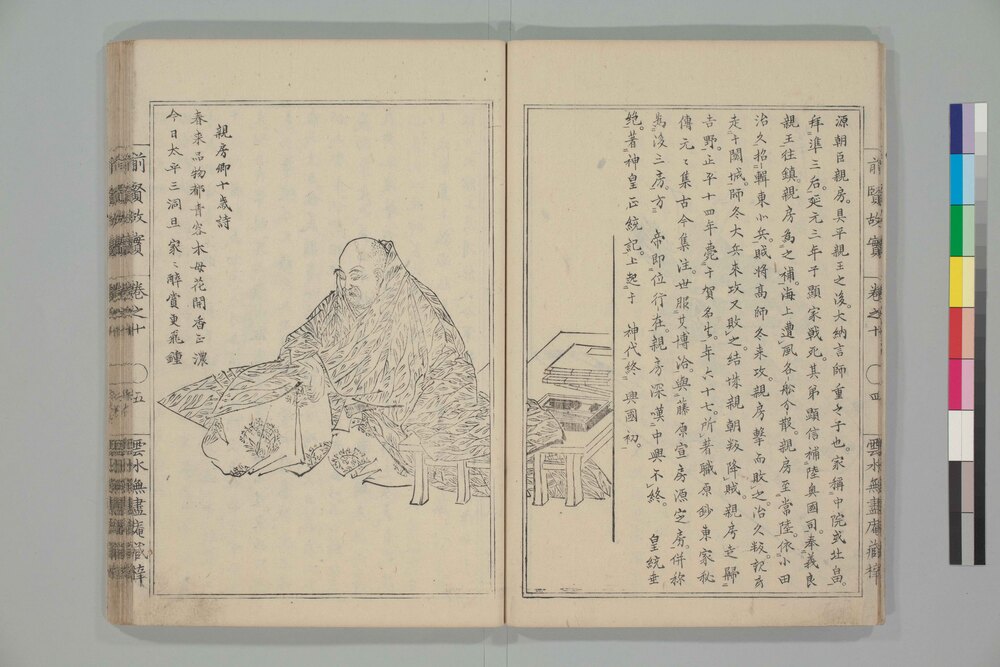 源朝臣親房。具平親王之後。大納言師重之子也。家稱中院或北畠。
拜準三后。延元三年子顯家戰死。其弟顯信補陸奧國司。奉義良
親王往鎮。親房為之補。海上遭風各船分散。親房至常陸。依小田
治久招輯東小兵。賊將高師冬来攻。親房擊而敗之。治久叛。親房
走于關城。師冬大兵来攻又敗之。結城親朝叛降賊。親房走歸
吉野。正平十四年薨于賀名生。年六十七。所著職原鈔東家秘
傳元々集古今集注。世服其博洽。與藤原宣房源定房。併称
為後三房。方帝即位行在。親房深嘆中興不終。皇統垂
絶。著神皇正統記。上起于神代終興國初。
前賢故實
卷之十
四
雲水無盡庵藏梓
親房卿十歳詩
春来品物都青容木母花開香正濃
今日太平三洞旦家々醉賞更飛鍾
前賢故實
卷之十
五
雲水無盡庵藏梓